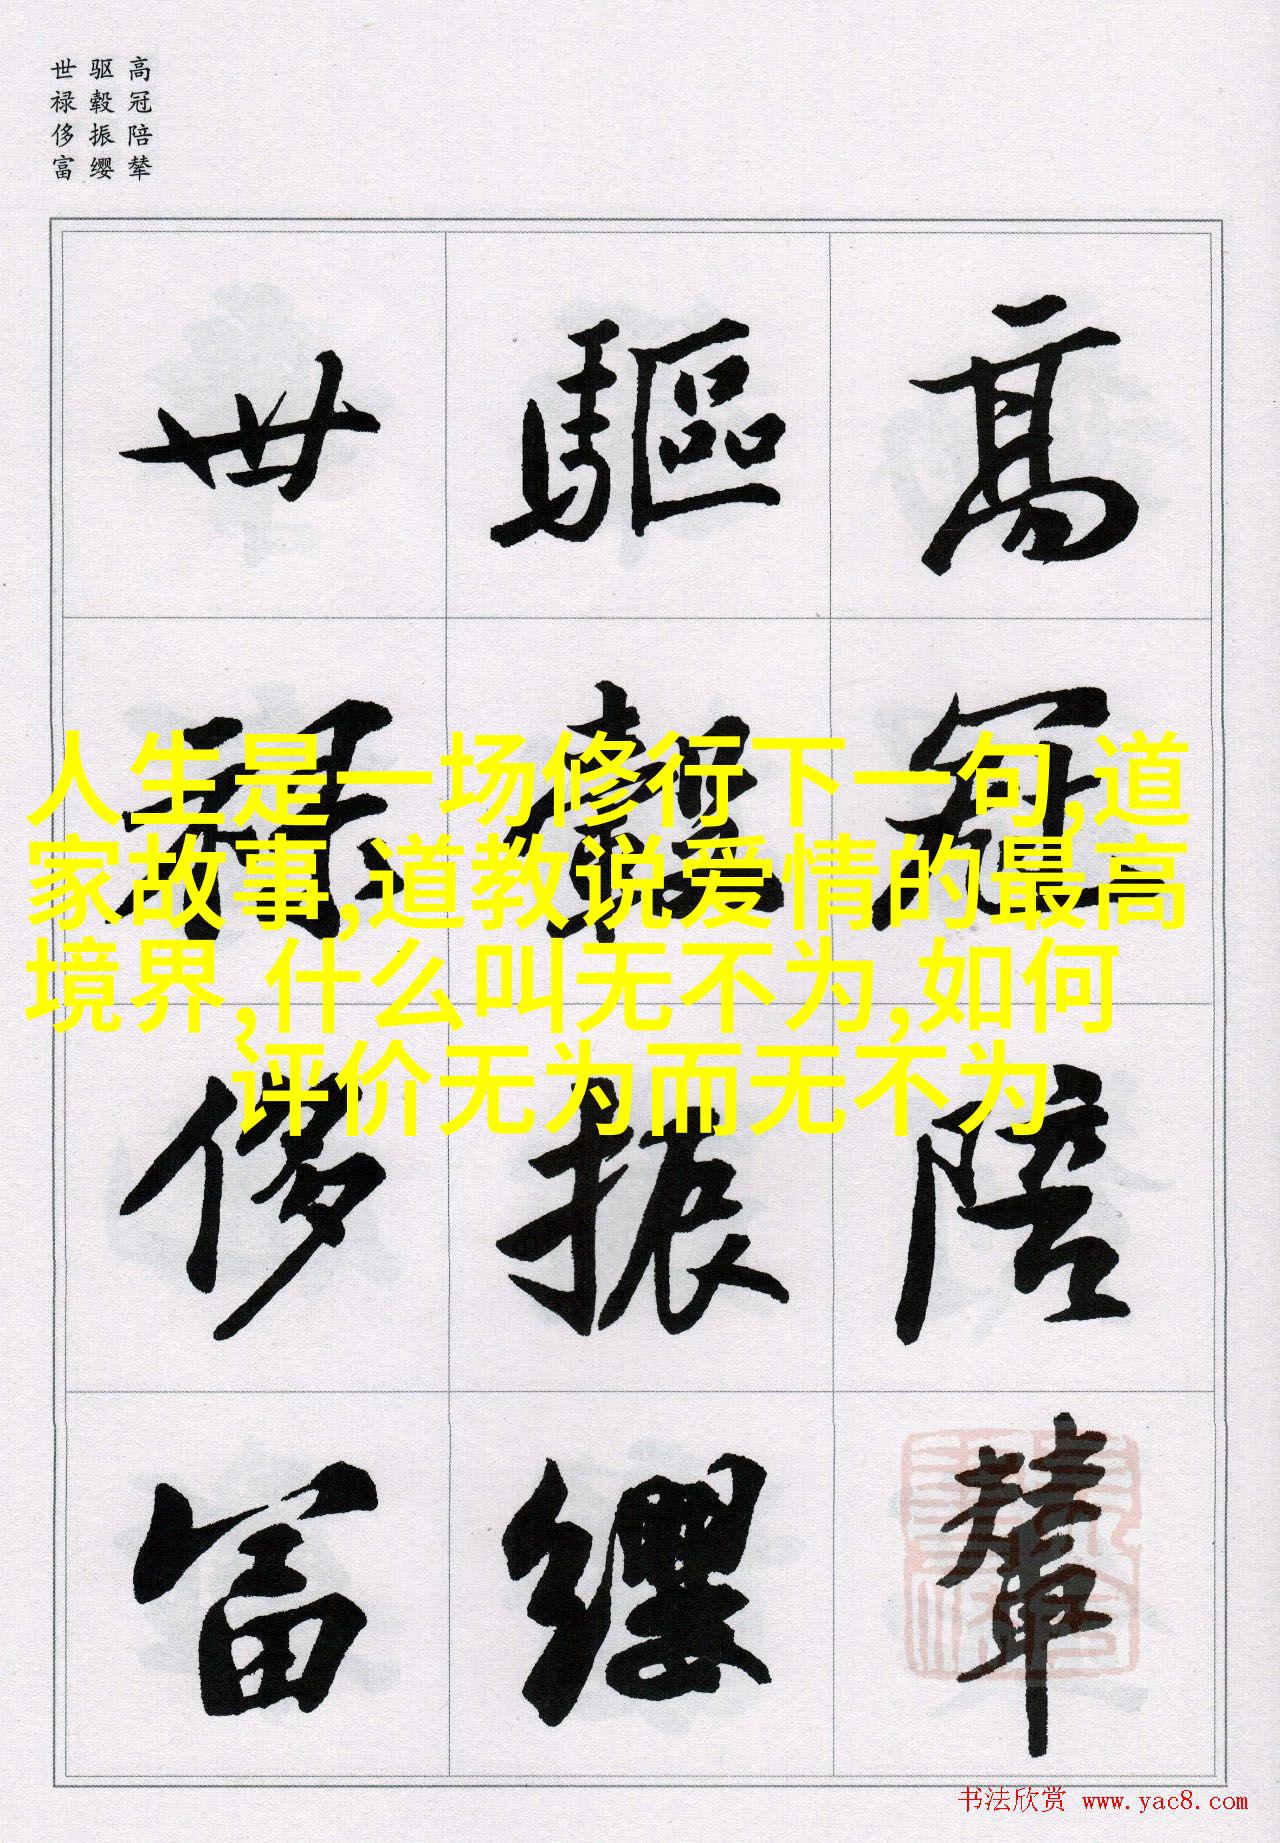 高冠陪辇
驱毂振缨
世禄侈富
高冠陪輦
驅轂振纓
世禄侈富
人生是一场修行下一句,道
家故事,道教说爱情的最高
境界,什么叫无不为,如何
评价无为而无不为
书法欣赏 www.yac8.com